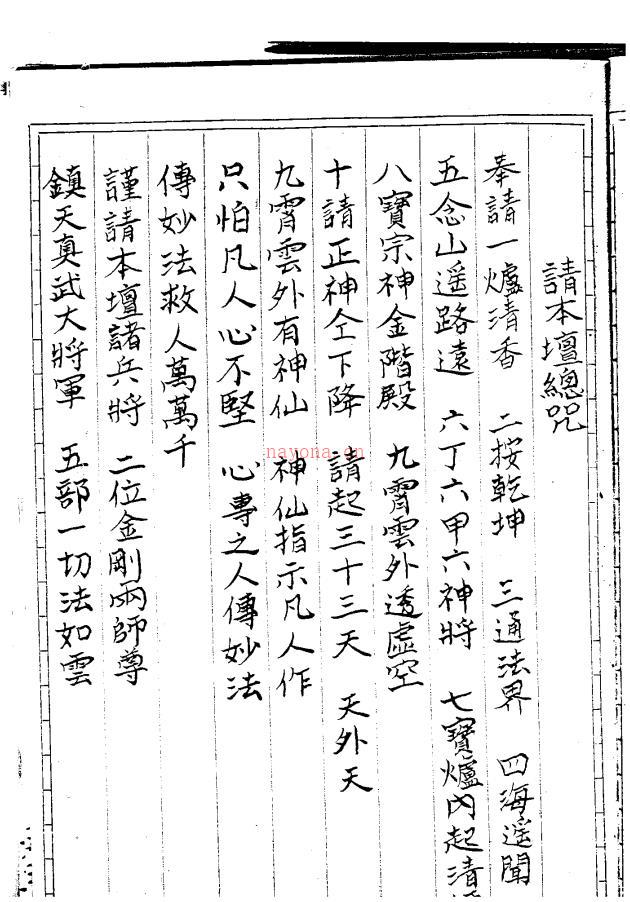 請本壇總咒
奉請一爐清香　二按乾坤　三通法界　四海遥聞
五念山遥路遠　六丁六甲六神將　七寶爐內起清
八寶宗神金階殿　九霄雲外透虛空
十請正神仝下降　請起三十三天　天外天
九霄雲外有神仙　神仙指示凡人作
只怕凡人心不堅　心專之人傳妙法
傳妙法救人萬萬千
謹請本壇諸兵將　二位金剛兩師尊
鎮天真武大將軍　五部一切法如雲
nayona.cn